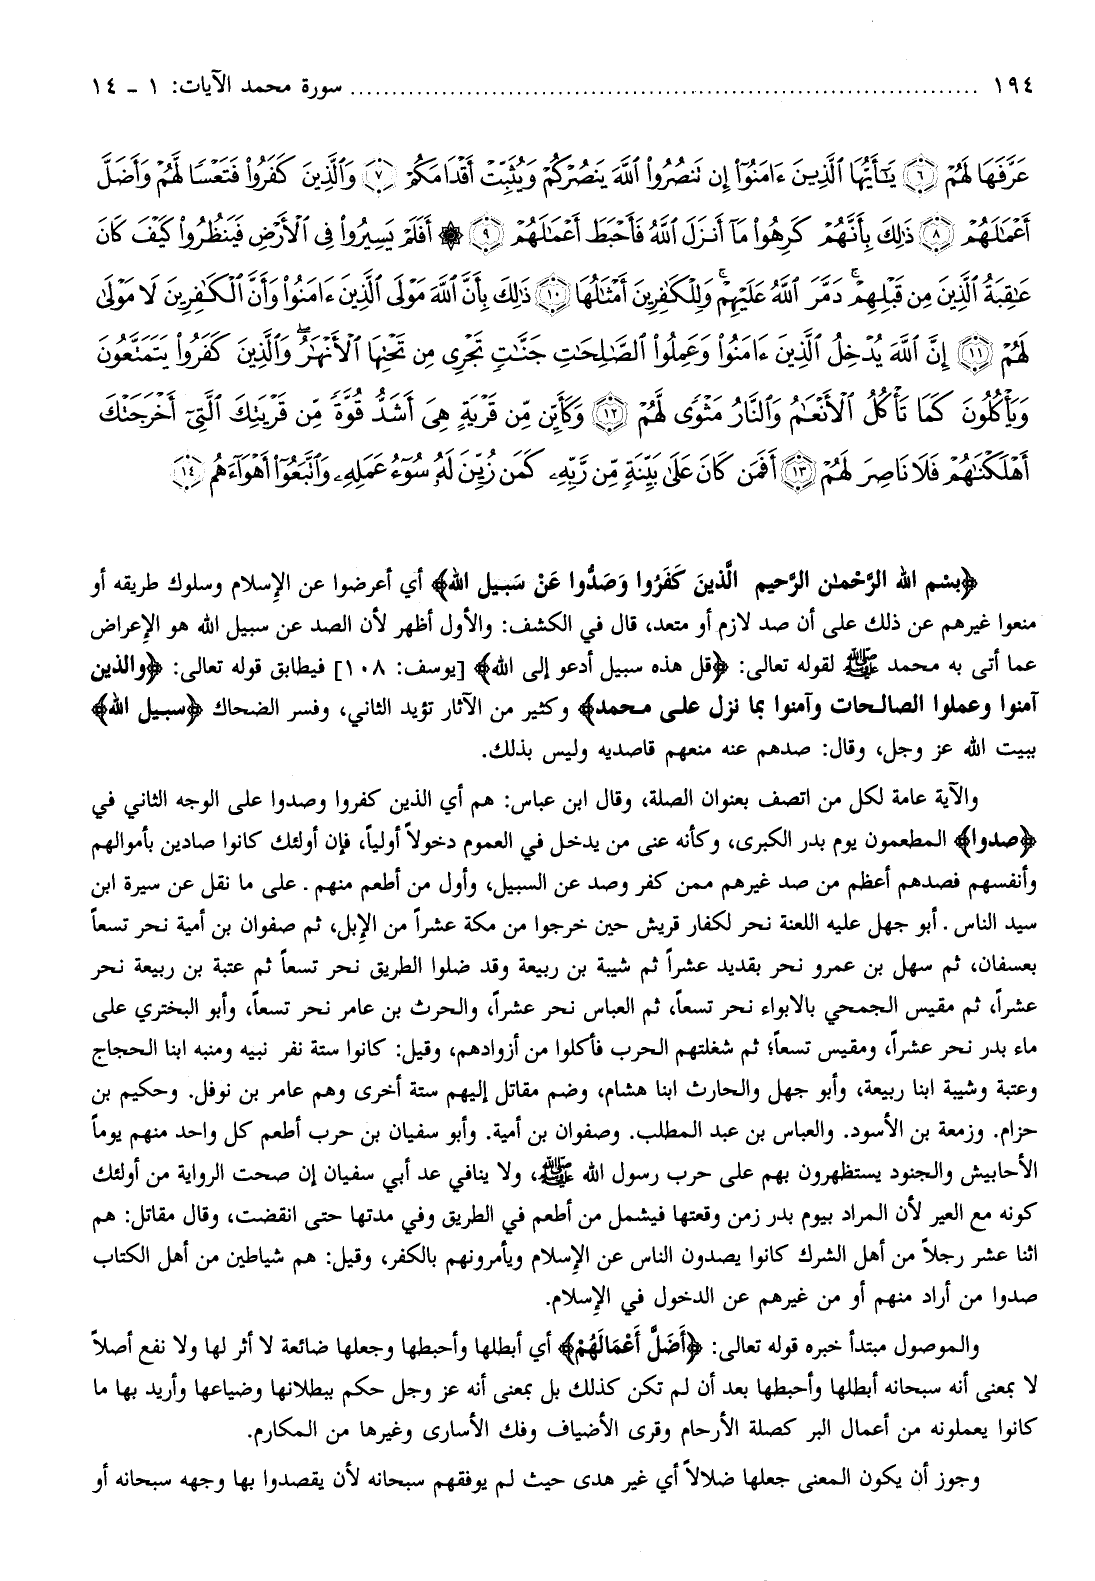 ١٩٤ ........................................ سورة محمد الآيات: ١ ـ ١٤
عَرَّفَهَا لَهُمْ ﴿٦﴾ يَٰٓأَيُّهَا ٱلَّذِينَ ءَامَنُوٓا۟ إِن تَنصُرُوا۟ ٱللَّهَ يَنصُرْكُمْ وَيُثَبِّتْ أَقْدَامَكُمْ ﴿٧﴾ وَٱلَّذِينَ كَفَرُوا۟ فَتَعْسًا لَّهُمْ وَأَضَلَّ
أَعْمَٰلَهُمْ ﴿٨﴾ ذَٰلِكَ بِأَنَّهُمْ كَرِهُوا۟ مَآ أَنزَلَ ٱللَّهُ فَأَحْبَطَ أَعْمَٰلَهُمْ ﴿٩﴾ ۞ أَفَلَمْ يَسِيرُوا۟ فِى ٱلْأَرْضِ فَيَنظُرُوا۟ كَيْفَ كَانَ
عَٰقِبَةُ ٱلَّذِينَ مِن قَبْلِهِمْ ۚ دَمَّرَ ٱللَّهُ عَلَيْهِمْ ۖ وَلِلْكَٰفِرِينَ أَمْثَٰلُهَا ﴿١٠﴾ ذَٰلِكَ بِأَنَّ ٱللَّهَ مَوْلَى ٱلَّذِينَ ءَامَنُوا۟ وَأَنَّ ٱلْكَٰفِرِينَ لَا مَوْلَىٰ
لَهُمْ ﴿١١﴾ إِنَّ ٱللَّهَ يُدْخِلُ ٱلَّذِينَ ءَامَنُوا۟ وَعَمِلُوا۟ ٱلصَّٰلِحَٰتِ جَنَّٰتٍ تَجْرِى مِن تَحْتِهَا ٱلْأَنْهَٰرُ ۖ وَٱلَّذِينَ كَفَرُوا۟ يَتَمَتَّعُونَ
وَيَأْكُلُونَ كَمَا تَأْكُلُ ٱلْأَنْعَٰمُ وَٱلنَّارُ مَثْوًى لَّهُمْ ﴿١٢﴾ وَكَأَيِّن مِّن قَرْيَةٍ هِىَ أَشَدُّ قُوَّةً مِّن قَرْيَتِكَ ٱلَّتِىٓ أَخْرَجَتْكَ
أَهْلَكْنَٰهُمْ فَلَا نَاصِرَ لَهُمْ ﴿١٣﴾ أَفَمَن كَانَ عَلَىٰ بَيِّنَةٍ مِّن رَّبِّهِۦ كَمَن زُيِّنَ لَهُۥ سُوٓءُ عَمَلِهِۦ وَٱتَّبَعُوٓا۟ أَهْوَآءَهُم ﴿١٤﴾
﴿بسْم الله الرَّحْمٰن الرَّحيم الَّذينَ كَفَرُوا وَصَدُّوا عَنْ سَبيل الله﴾ أي أعرضوا عن الإِسلام وسلوك طريقه أو
منعوا غيرهم عن ذلك على أن صد لازم أو متعد، قال في الكشف: والأول أظهر لأن الصد عن سبيل الله هو الإِعراض
عما أتى به محمد ﷺ لقوله تعالى: ﴿قل هذه سبيل أدعو إلى الله﴾ [يوسف: ١٠٨] فيطابق قوله تعالى: ﴿والذين
آمنوا وعملوا الصالحات وآمنوا بما نزل على محمد﴾ وكثير من الآثار تؤيد الثاني، وفسر الضحاك ﴿سبيل الله﴾
ببيت الله عز وجل، وقال: صدهم عنه منعهم قاصديه وليس بذلك.
والآية عامة لكل من اتصف بعنوان الصلة، وقال ابن عباس: هم أي الذين كفروا وصدوا على الوجه الثاني في
﴿صدوا﴾ المطعمون يوم بدر الكبرى، وكأنه عنى من يدخل في العموم دخولاً أولياً، فإن أولئك كانوا صادين بأموالهم
وأنفسهم فصدهم أعظم من صد غيرهم ممن كفر وصد عن السبيل، وأول من أطعم منهم. على ما نقل عن سيرة ابن
سيد الناس. أبو جهل عليه اللعنة نحر لكفار قريش حين خرجوا من مكة عشراً من الإِبل، ثم صفوان بن أمية نحر تسعاً
بعسفان، ثم سهل بن عمرو نحر بقديد عشراً ثم شيبة بن ربيعة وقد ضلوا الطريق نحر تسعاً ثم عتبة بن ربيعة نحر
عشراً، ثم مقيس الجمحي بالابواء نحر تسعاً، ثم العباس نحر عشراً، والحرث بن عامر نحر تسعاً، وأبو البختري على
ماء بدر نحر عشراً، ومقيس تسعاً؛ ثم شغلتهم الحرب فأكلوا من أزوادهم، وقيل: كانوا ستة نفر نبيه ومنبه ابنا الحجاج
وعتبة وشيبة ابنا ربيعة، وأبو جهل والحارث ابنا هشام، وضم مقاتل إليهم ستة أخرى وهم عامر بن نوفل. وحكيم بن
حزام. وزمعة بن الأسود. والعباس بن عبد المطلب. وصفوان بن أمية. وأبو سفيان بن حرب أطعم كل واحد منهم يوماً
الأحابيش والجنود يستظهرون بهم على حرب رسول الله ﷺ، ولا ينافي عد أبي سفيان إن صحت الرواية من أولئك
كونه مع العير لأن المراد بيوم بدر زمن وقعتها فيشمل من أطعم في الطريق وفي مدتها حتى انقضت، وقال مقاتل: هم
اثنا عشر رجلاً من أهل الشرك كانوا يصدون الناس عن الإِسلام ويأمرونهم بالكفر، وقيل: هم شياطين من أهل الكتاب
صدوا من أراد منهم أو من غيرهم عن الدخول في الإِسلام.
والموصول مبتدأ خبره قوله تعالى: ﴿أَضَلَّ أَعْمَالَهُمْ﴾ أي أبطلها وأحبطها وجعلها ضائعة لا أثر لها ولا نفع أصلاً
لا بمعنى أنه سبحانه أبطلها وأحبطها بعد أن لم تكن كذلك بل بمعنى أنه عز وجل حكم ببطلانها وضياعها وأريد بها ما
كانوا يعملونه من أعمال البر كصلة الأرحام وقرى الأضياف وفك الأسارى وغيرها من المكارم.
وجوز أن يكون المعنى جعلها ضلالاً أي غير هدى حيث لم يوفقهم سبحانه لأن يقصدوا بها وجهه سبحانه أو